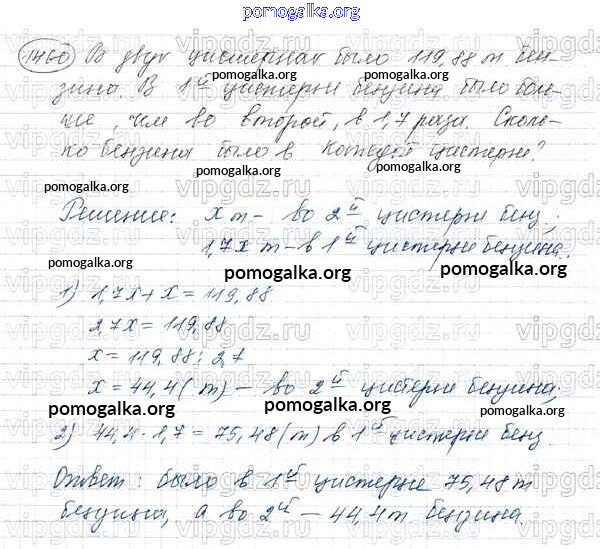 pomogalka.org
1460 В двух цистернах было 119,88 т бен-
pomogalka.org pomogalka.org
зина. В 1ой цистерне бензина было боль-
ше, чем во второй, в 1,7 раза. Сколь-
pomogalka.org
ко бензина было в каждой цистерне?
pomogalka.org
Решение: x т – во 2й цистерне бенз.
1,7x т – в 1й цистерне бензина.
pomogalka.org pomogalka.org pomogalka.org
1) 1,7x + x = 119,88
2,7x = 119,88
x = 119,88 : 2,7
x = 44,4 (т) – во 2й цистерне бензина;
pomogalka.org pomogalka.org pomogalka.org
2) 44,4 · 1,7 = 75,48 (т) в 1й цистерне бенз.
Ответ: было в 1й цистерне 75,48 т
бензина, а во 2й – 44,4 т бензина.